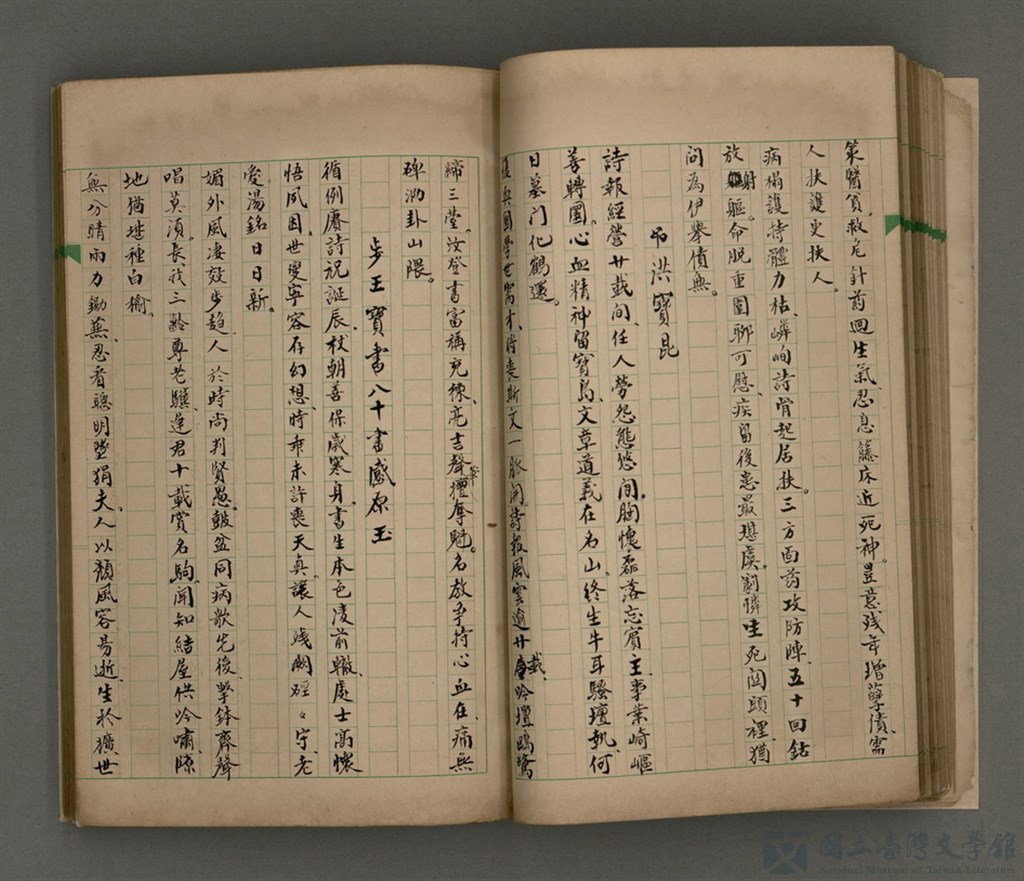 策醫貧救危針葯迴生氣、忍息籐床近死神。豈意残年增孽債、需
人扶護更扶人。
病榻護持體力枯、嶙峋詩骨起居扶。三方面葯攻防陣、五十回鈷
放射軀。命脱重圍聊可慰、疾留後患最堪虞。劇憐生死関頭裡、猶
问為伊舉債無。
弔洪寶昆
詩報經营廿載间、任人勞怨態悠间。胸懷磊落忘賓主、事業崎嶇
善轉圜。心血精神留寶島、文章道義在名山。終生牛耳騷壇執、何
日墓门化鶴還。
復興國學世需才、将喪斯文一脈開。詩報風雲逾廿載、吟壇鷗鷺
締三堂。汝登書富稱充棟、亮吉聲華壇辱魁。名教爭持心血在、痛無
碑泐卦山隈。
步王寶書八十書感原玉
循例賡詩祝誕辰、杖朝善保歲寒身。書生本色凌前轍、處士高懷
悟夙因。世變寧容存幻想、時乖未許喪天真。讓人残闕硜々守、老
愛湯銘日日新。
媚外風淒效步趋、人於時尚判賢愚。鼓盆同病歌先後、擊鉢齊聲
唱莫須。長我三齡尊老驥、逢君十載賞名駒。聞知結屋供吟嘯、隙
地猶堪種白榆。
無分晴雨力鋤蕪、忍看聰明墮狷夫。人以頹風容易逝、生於獷世